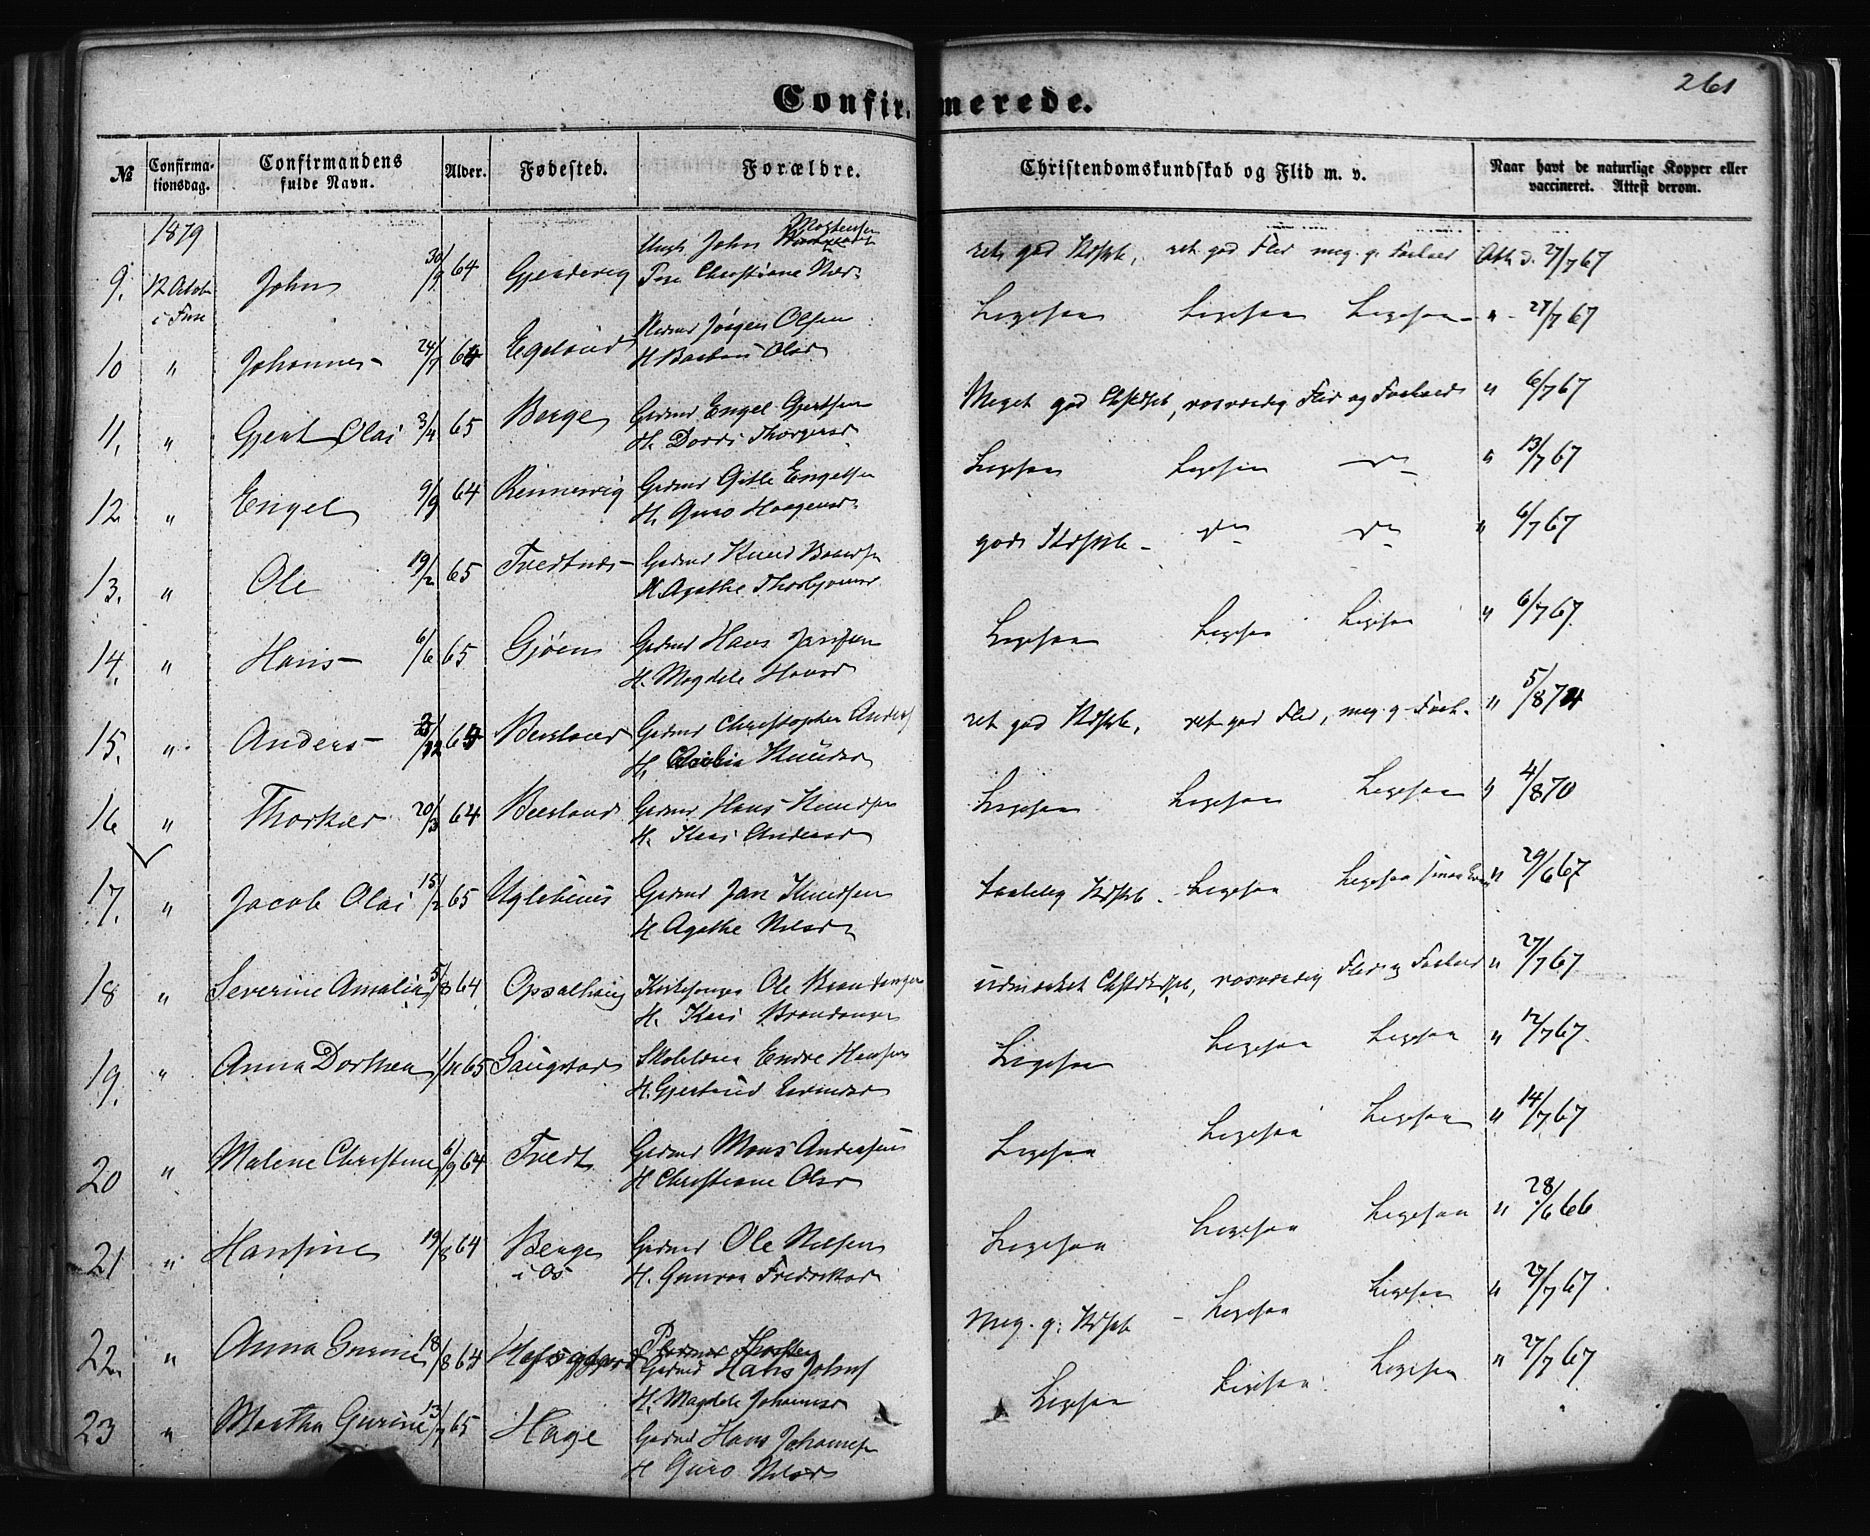 261
Confirmerede.
№ Confirma-tionsdag. Confirmandens fulde Navn. Alder. Fødested. Forældre. Christendomskundskab og Flid m. v. Naar havt de naturlige Kopper eller vaccineret. Attest derom.
1879
9. 12 Octob John 30/9 64 Gjendevig Ungk John Mogtensen ret god Kdskb, ret god Flid meg. g. Forhold Att. d. 27/7 67
i Fuse Christiane
10 " Johannes 24/7 64 Egeland Gdmd Jørgen Olsen Ligesaa Ligesaa Ligesaa " 27/7 67
H. Olsd
11. " Gjert Olai 3/4 65 Berge Gdmd Engel Gjertsen Meget god Chstdskb, rosværdig Flid og Forhold " 6/7 67
H. Dordi Thorgersd
12 " Engel 9/9 64 Rennevig Gdmd Gitle Engelsen Ligesaa Ligesaa do " 13/7 67
H. Guro Haagensd
13. " Ole 19/2 65 Tvedtnes Gdmd Knud god Kdskb do do " 6/7 67
H. Agathe Thorbjørnsd
14. " Hans 6/6 65 Gjøen Gdmd Hans Jansen Ligesaa Ligesaa Ligesaa " 6/7 67
H. Magdele Hansd
15. " Anders /12 64 Bersland Gdmd Christopher Anders ret god Kdskb, ret god Flid, meg. g. Forh. " 5/8 74
H. Knudsd
16 " Thorkel 20/3 64 Beesland Gdmd Hans Knudsen Ligesaa Ligesaa Ligesaa " 4/8 70
H. Kari Andersd
17. " Jacob Olai 15/2 65 Uglehuus Gdmd Jan Knudsen taalelig Kdskb. Ligesaa Ligesaa " 29/6 67
H. Agathe Nilsd
18 " Severine Amalia 5/8 64 Opsalhaug Kirkesanger Ole Brandanger udmærket Chstdkdskb, rosværdig Flid og Forhold " 27/7 67
H. Kari Brandanger
19. " Anna Dorthea 1/11 65 Saugstad Skolelærer Endre Hansen Ligesaa Ligesaa Ligesaa " 12/7 67.
H. Gjertrud
20 " Malene Christine 6/9 64 Tvedt Gdmd Mons Andersen Ligesaa Ligesaa Ligesaa " 14/7 67
H. Christiane Olsd
21 " Hansine 19/8 64 Berge Gdmd Ole Nilsen Ligesaa Ligesaa Ligesaa " 28/6 66
i Os H. Fredriksd
22. " Anna Gurine 18/8 64 Gdmd Hans Johns Meg. g. Kdskb Ligesaa Ligesaa " 27/7 67
H. Magdele Johannesd
23 " Martha Gurine 13/7 65 Hage Gdmd Hans Johannes Ligesaa Ligesaa Ligesaa " 27/7 67
H. Guro Nilsd